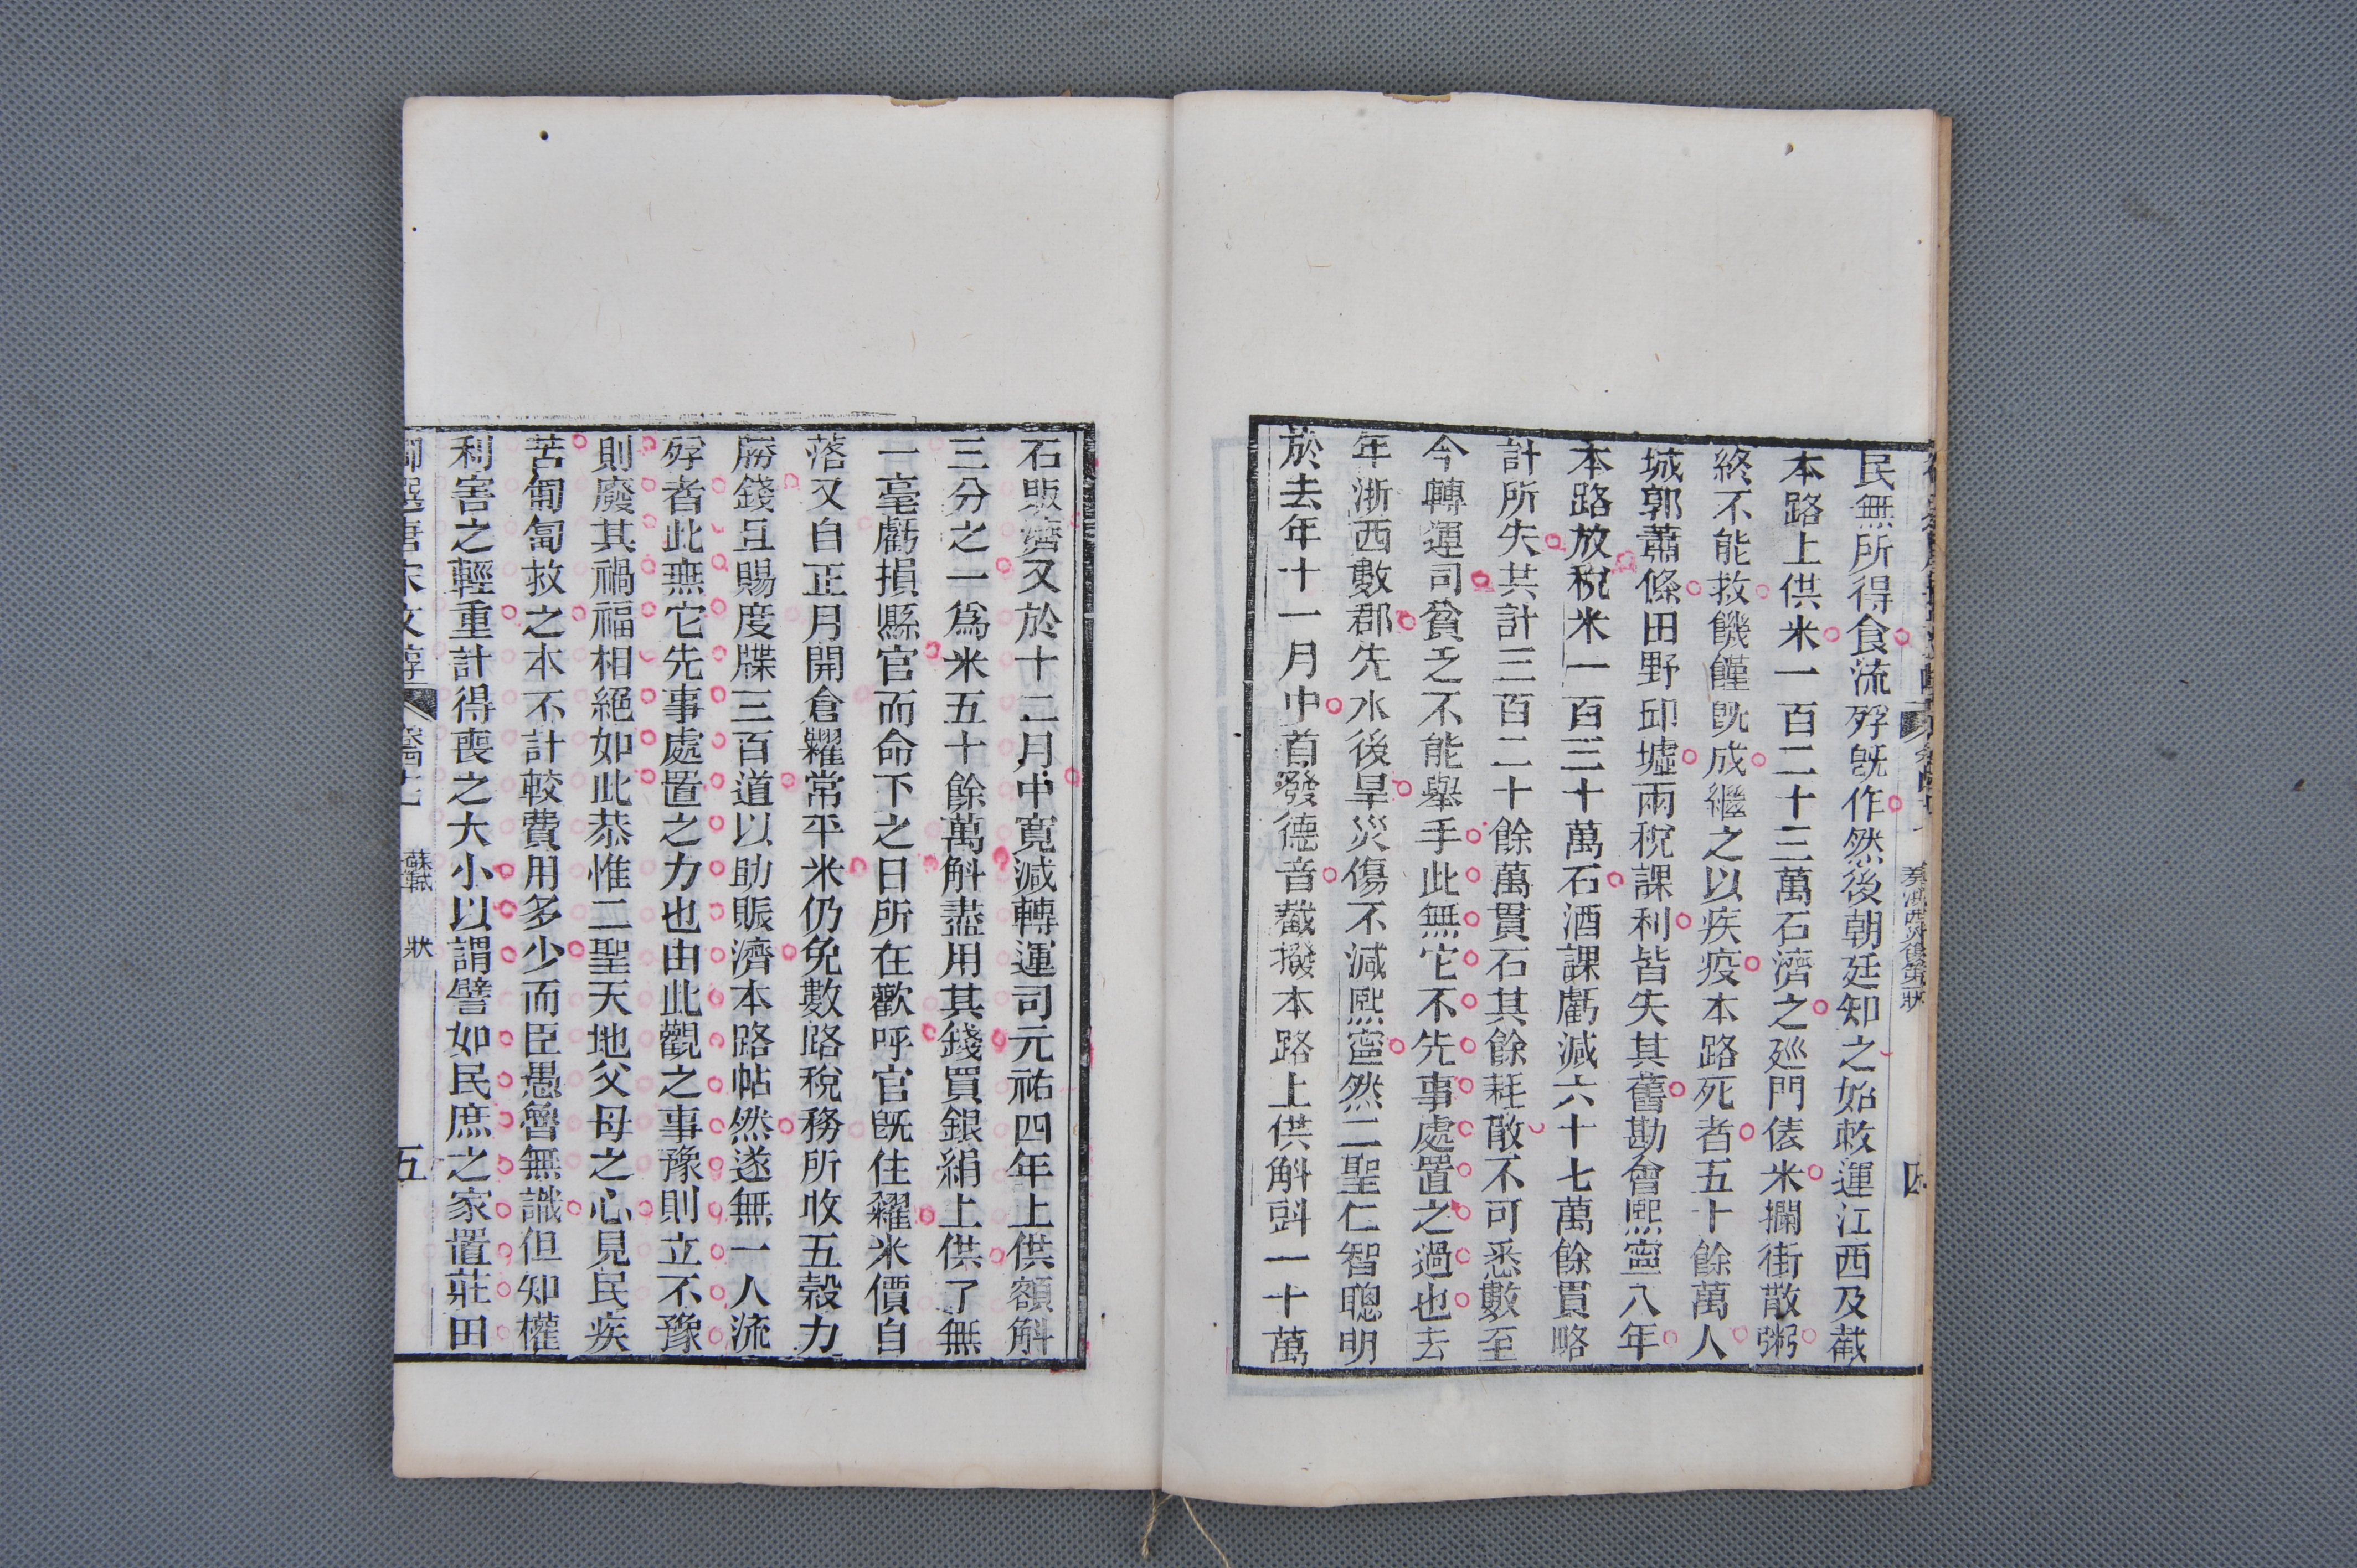 民無所得食流殍旣作然後朝廷知之始敕運江西及截
本路上供米一百二十三萬石濟之廵門俵米攔街散粥
終不能救饑饉旣成繼之以疾疫本路死者五十餘萬人
城郭蕭條田野邱墟兩稅課利皆失其舊勘會熙寧八年
本路放稅米一百三十萬石酒課虧減六十七萬餘貫略
計所失共計三百二十餘萬貫石其餘耗散不可悉數至
今轉運司貧乏不能舉手此無它不先事處置之過也去
年浙西數郡先水後旱災傷不減熙寧然二聖仁智聰明
於去年十一月中首發德音截撥本路上供斛㪷一十萬
石賑濟又於十二月中寬減轉運司元祐四年上供額斛
三分之一爲米五十餘萬斛盡用其錢買銀絹上供了無
一毫虧損縣官而命下之日所在歡呼官旣住糴米價自
落又自正月開倉糶常平米仍免數路稅務所收五穀力
勝錢且賜度牒三百道以助賑濟本路帖然遂無一人流
殍者此無它先事處置之力也由此觀之事豫則立不豫
則廢其禍福相絕如此恭惟二聖天地父母之心見民疾
苦匍匐救之本不計較費用多少而臣愚魯無識但知權
利害之輕重計得喪之大小以謂譬如民庶之家置莊田
御選唐宋文醇 蘇軾 狀 五